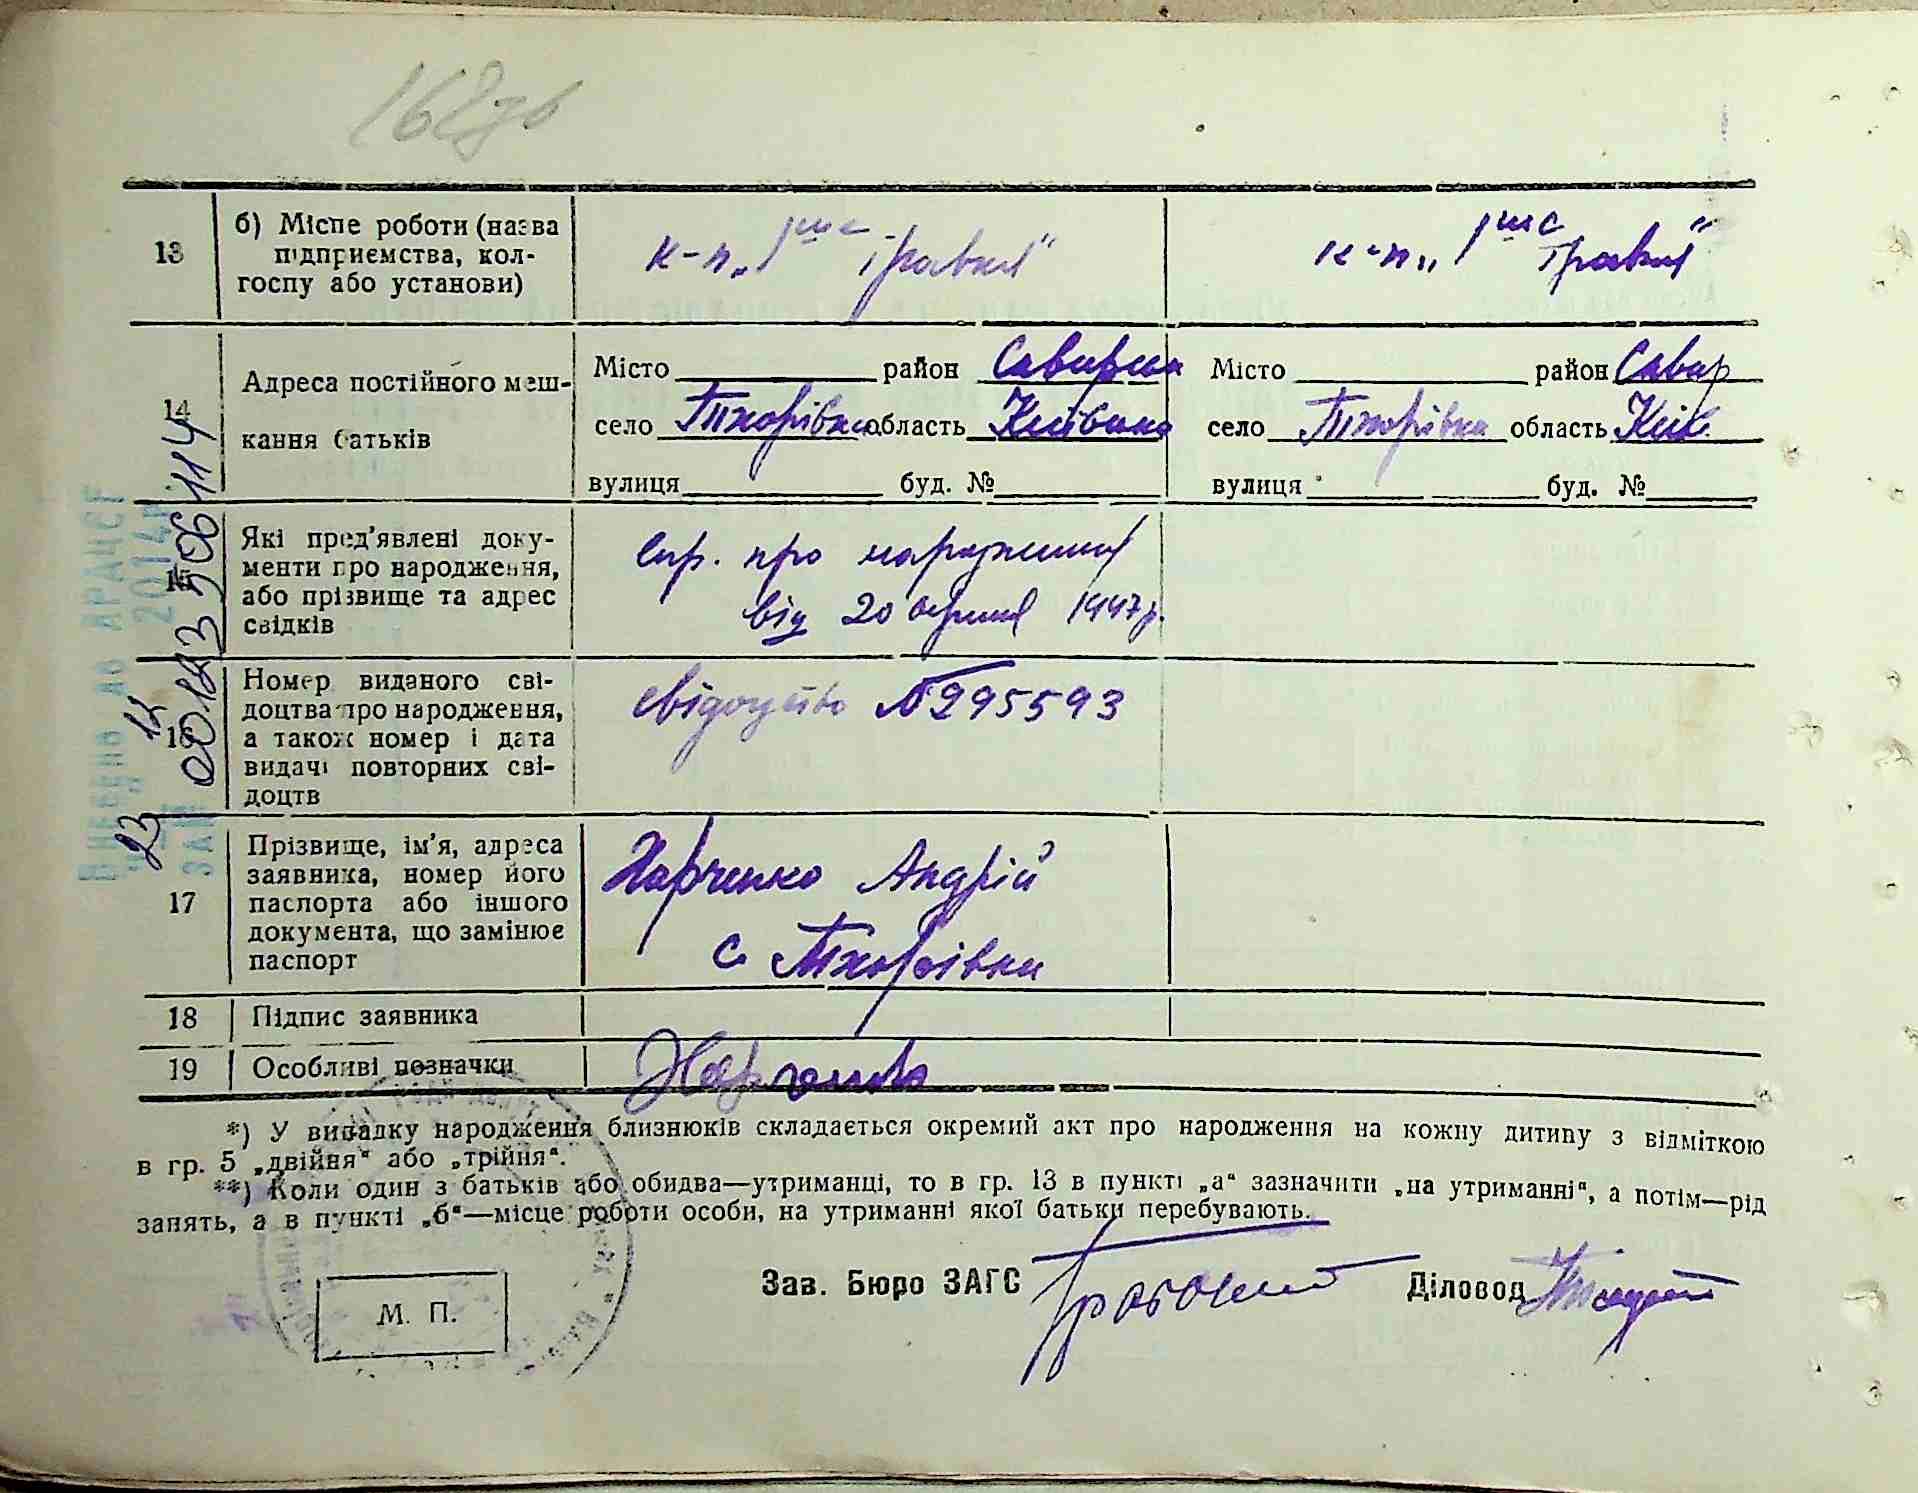 168зв
13
б) Місце роботи (назва
підприємства, кол-
госпу або установи)
к-п „1ше травня“
к-п „1ше травня“
14
Адреса постійного меш-
кання батьків
Місто район Сквирськ
село Тхорівка область Київська
вулиця буд. №
Місто район Сквир
село Тхорівка область Київ.
вулиця буд. №
15
Які пред'явлені доку-
менти про народження,
або прізвище та адрес
свідків
про народження
від 20 серпня 1947р.
16
Номер виданого сві-
доцтва про народження,
а також номер і дата
видачі повторних сві-
доцтв
свідоцтво №295593
17
Прізвище, ім'я, адреса
заявника, номер його
паспорта або іншого
документа, що замінює
паспорт
Харченко Андрій
с. Тхорівка
18
Підпис заявника
19
Особливі позначки
Харченко
*) У випадку народження близнюків складається окремий акт про народження на кожну дитину з відміткою
в гр. 5 „двійня“ або „трійня“.
**) Коли один з батьків або обидва—утриманці, то в гр. 13 в пункті „а“ зазначити „на утриманні“, а потім—рід
занять, а в пункті „б“—місце роботи особи, на утриманні якої батьки перебувають.
Зав. Бюро ЗАГС
Діловод
М. П.
Внесено до ДРАЦСГ
23 12 2014р.
ЗА №
00123506114